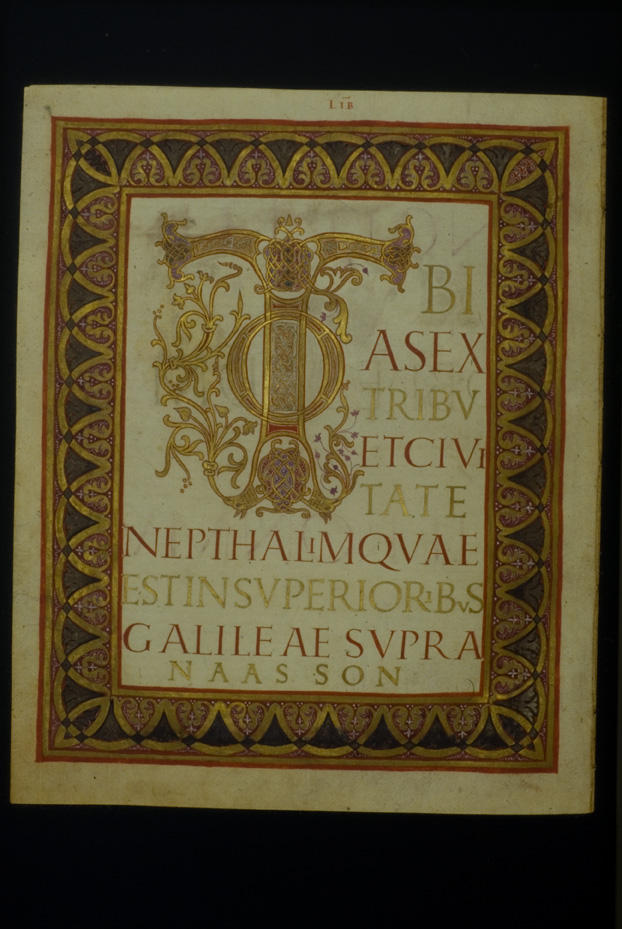 LIB
TO BI
AS EX
TRIBV
ET CIVI
TATE
NEPTHALIM QVAE
EST IN SVPERIORIBVS
GALILEAE SVPRA
NAASSON